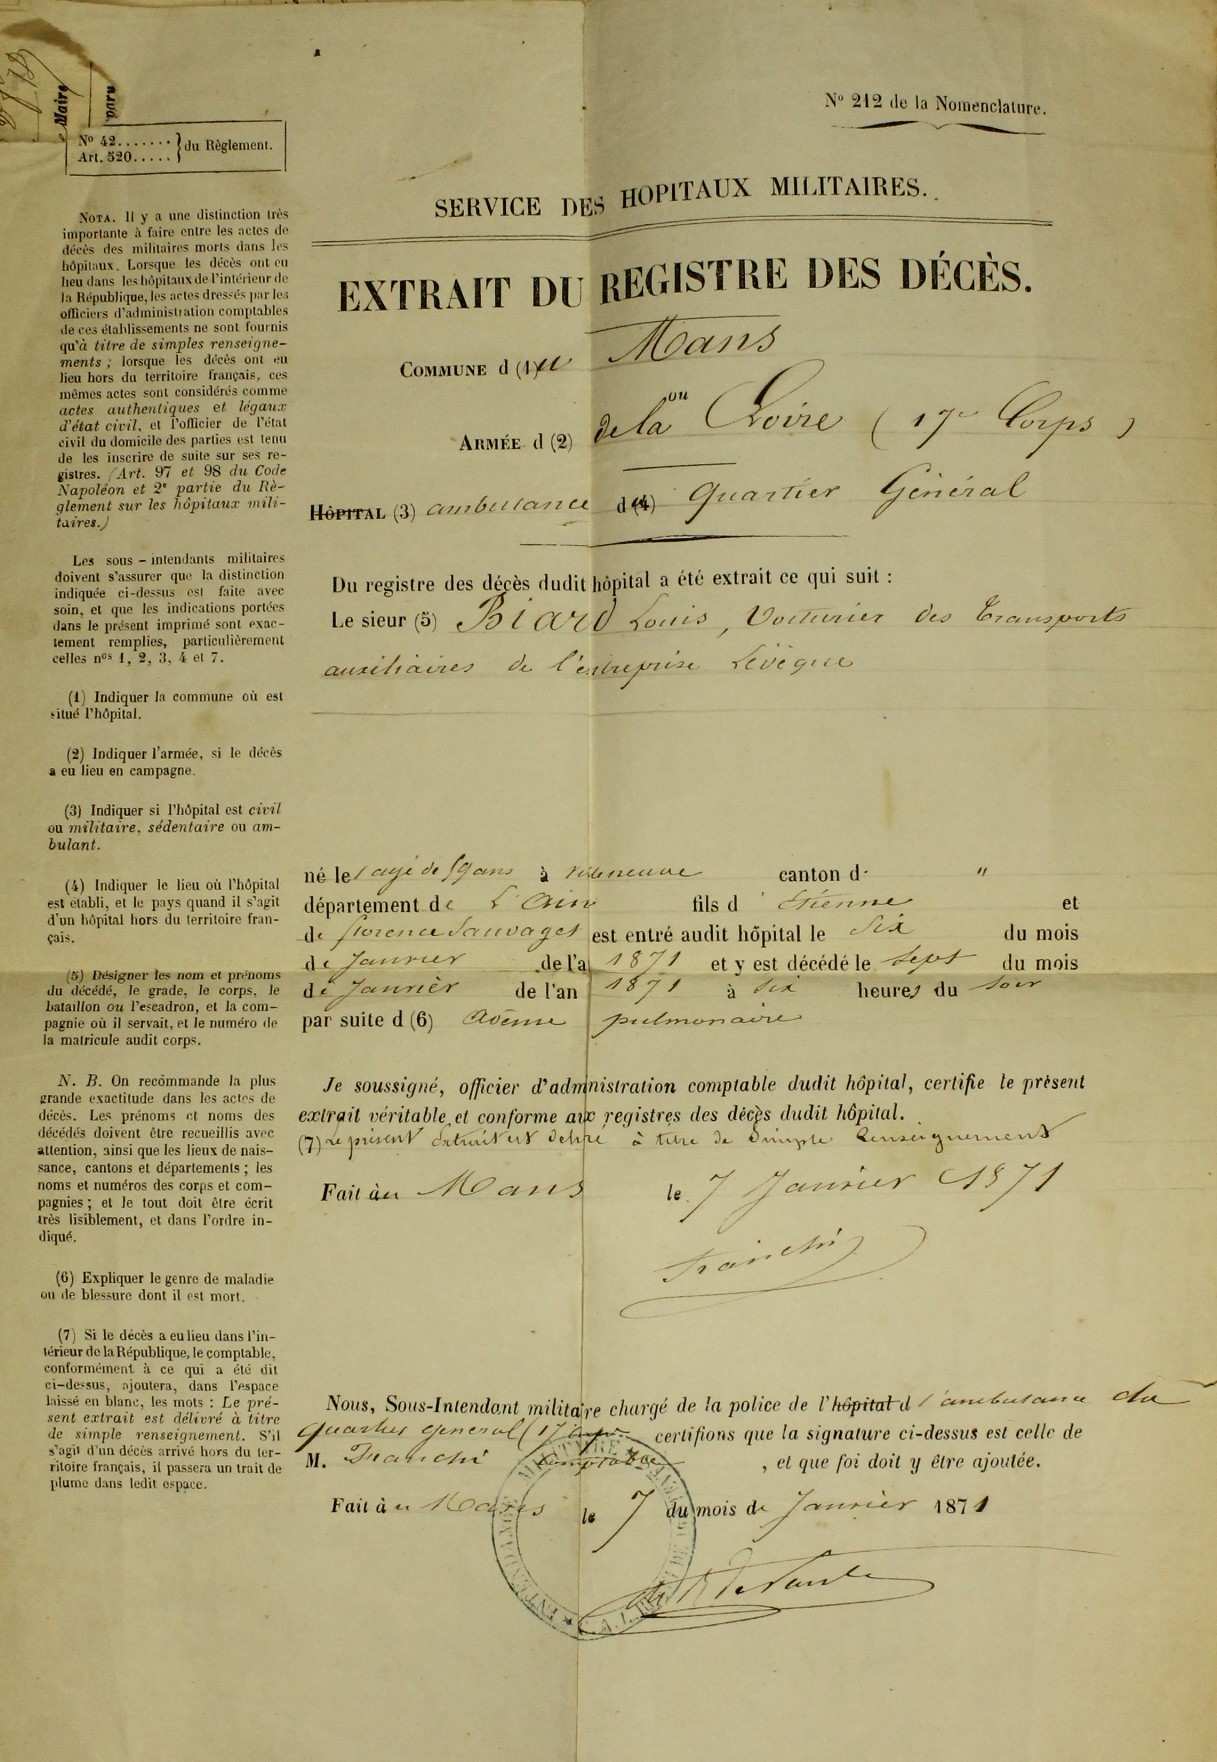 Maire
paru
Nº 42.......
Art. 520.....
du Règlement.
Nº 212 de la Nomenclature.
SERVICE DES HOPITAUX MILITAIRES.
EXTRAIT DU REGISTRE DES DÉCÈS.
COMMUNE d (1) u Mans
ou
ARMÉE d (2) de la Loire (17e Corps)
HÔPITAL (3) ambulance d (4) quartier Général
Du registre des décès dudit hôpital a été extrait ce qui suit :
Le sieur (5) Biard Louis, Voiturier des Transports
auxiliaires de l'entreprise Levêque
né le agé de 59 ans à Villeneuve canton d "
département de L'Ain fils d' Etienne et
de florence Sauvaget est entré audit hôpital le Six du mois
de Janvier de l'a 1871 et y est décédé le Sept du mois
de Janvier de l'an 1871 à Six heures du Soir
par suite d (6) Œdème pulmonaire
Je soussigné, officier d'administration comptable dudit hôpital, certifie le présent
extrait véritable, et conforme aux registres des décès dudit hôpital.
(7) Le présent extrait est délivré à titre de Simple Renseignement
Fait au Mans le 7 Janvier 1871
Franchi
Nous, Sous-Intendant militaire chargé de la police de l'hôpital d l'ambulance du
quartier général (17e Corps) certifions que la signature ci-dessus est celle de
M. Franchi Comptable, et que foi doit y être ajoutée.
Fait à u Mans le 7 du mois de Janvier 1871
INTENDANCE MILITAIRE
NOTA. Il y a une distinction très
importante à faire entre les actes de
décès des militaires morts dans les
hôpitaux. Lorsque les décès ont eu
lieu dans les hôpitaux de l'intérieur de
la République, les actes dressés par les
officiers d'administration comptables
de ces établissements ne sont fournis
qu'à titre de simples renseigne-
ments ; lorsque les décès ont eu
lieu hors du territoire français, ces
mêmes actes sont considérés comme
actes authentiques et légaux
d'état civil, et l'officier de l'état
civil du domicile des parties est tenu
de les inscrire de suite sur ses re-
gistres. (Art. 97 et 98 du Code
Napoléon et 2e partie du Rè-
glement sur les hôpitaux mili-
taires.)
Les sous-intendants militaires
doivent s'assurer que la distinction
indiquée ci-dessus est faite avec
soin, et que les indications portées
dans le présent imprimé sont exac-
tement remplies, particulièrement
celles nos 1, 2, 3, 4 et 7.
(1) Indiquer la commune où est
situé l'hôpital.
(2) Indiquer l'armée, si le décès
a eu lieu en campagne.
(3) Indiquer si l'hôpital est civil
ou militaire, sédentaire ou am-
bulant.
(4) Indiquer le lieu où l'hôpital
est établi, et le pays quand il s'agit
d'un hôpital hors du territoire fran-
çais.
(5) Désigner les nom et prénoms
du décédé, le grade, le corps, le
bataillon ou l'escadron, et la com-
pagnie où il servait, et le numéro de
la matricule audit corps.
N. B. On recommande la plus
grande exactitude dans les actes de
décès. Les prénoms et noms des
décédés doivent être recueillis avec
attention, ainsi que les lieux de nais-
sance, cantons et départements ; les
noms et numéros des corps et com-
pagnies ; et le tout doit être écrit
très lisiblement, et dans l'ordre in-
diqué.
(6) Expliquer le genre de maladie
ou de blessure dont il est mort.
(7) Si le décès a eu lieu dans l'in-
térieur de la République, le comptable,
conformément à ce qui a été dit
ci-dessus, ajoutera, dans l'espace
laissé en blanc, les mots : Le pré-
sent extrait est délivré à titre
de simple renseignement. S'il
s'agit d'un décès arrivé hors du ter-
ritoire français, il passera un trait de
plume dans ledit espace.